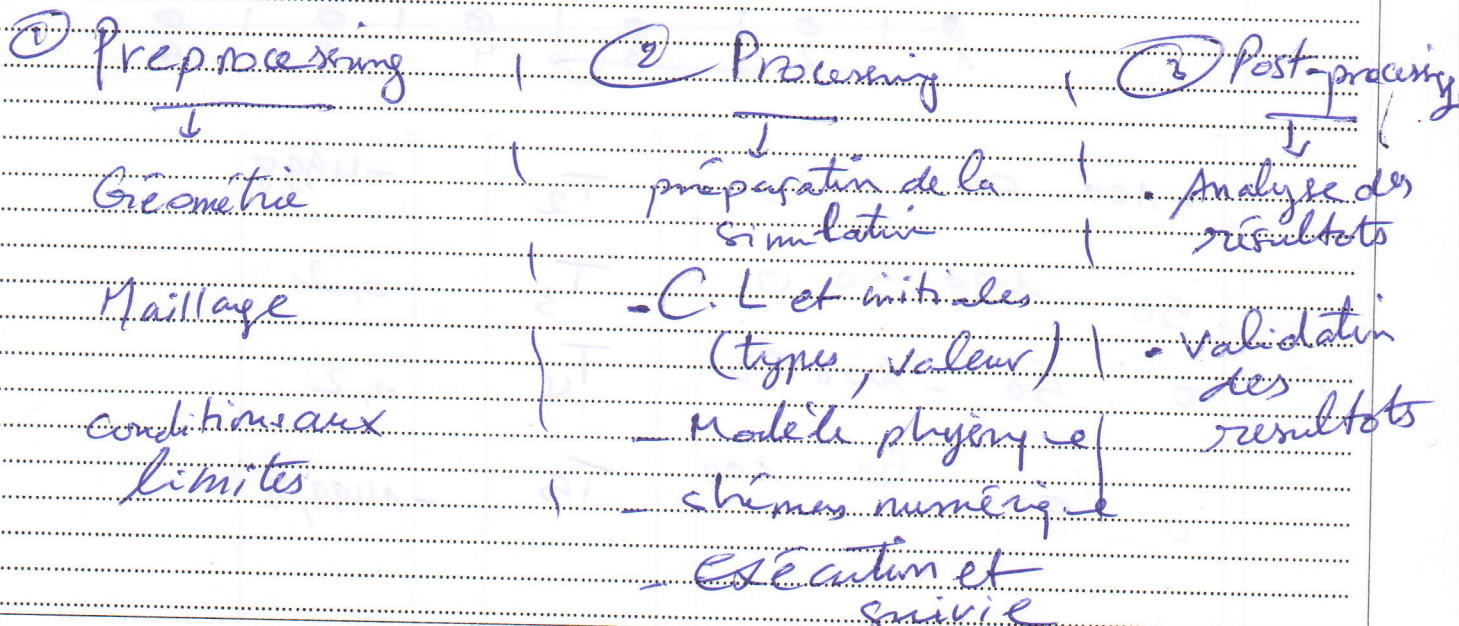 ① Preprocessing
Géométrie
Maillage
conditions aux
limites
② Processing
préparation de la
simulation
- C. L et initiales
(types, valeur)
- Modèle physique
- schémas numérique
- exécution et
suivie
③ Post-processing
• Analyse des
résultats
• validation
des
resultats